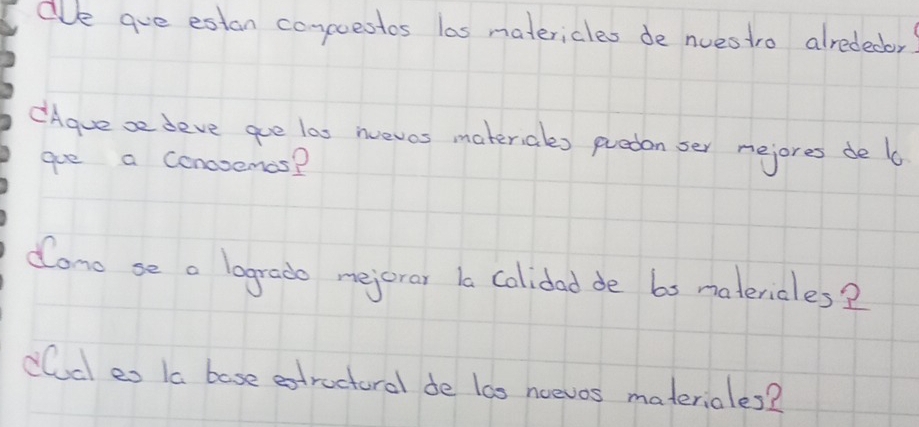 ¿De que estan compuestos los materiales de nuestro alrededor?
¿Aque se deve que los nuevos materiales puedan ser mejores de lo
que a conosemos?
¿Como se a logrado mejorar la calidad de los materiales?
¿Cual es la base estructural de los nuevos materiales?